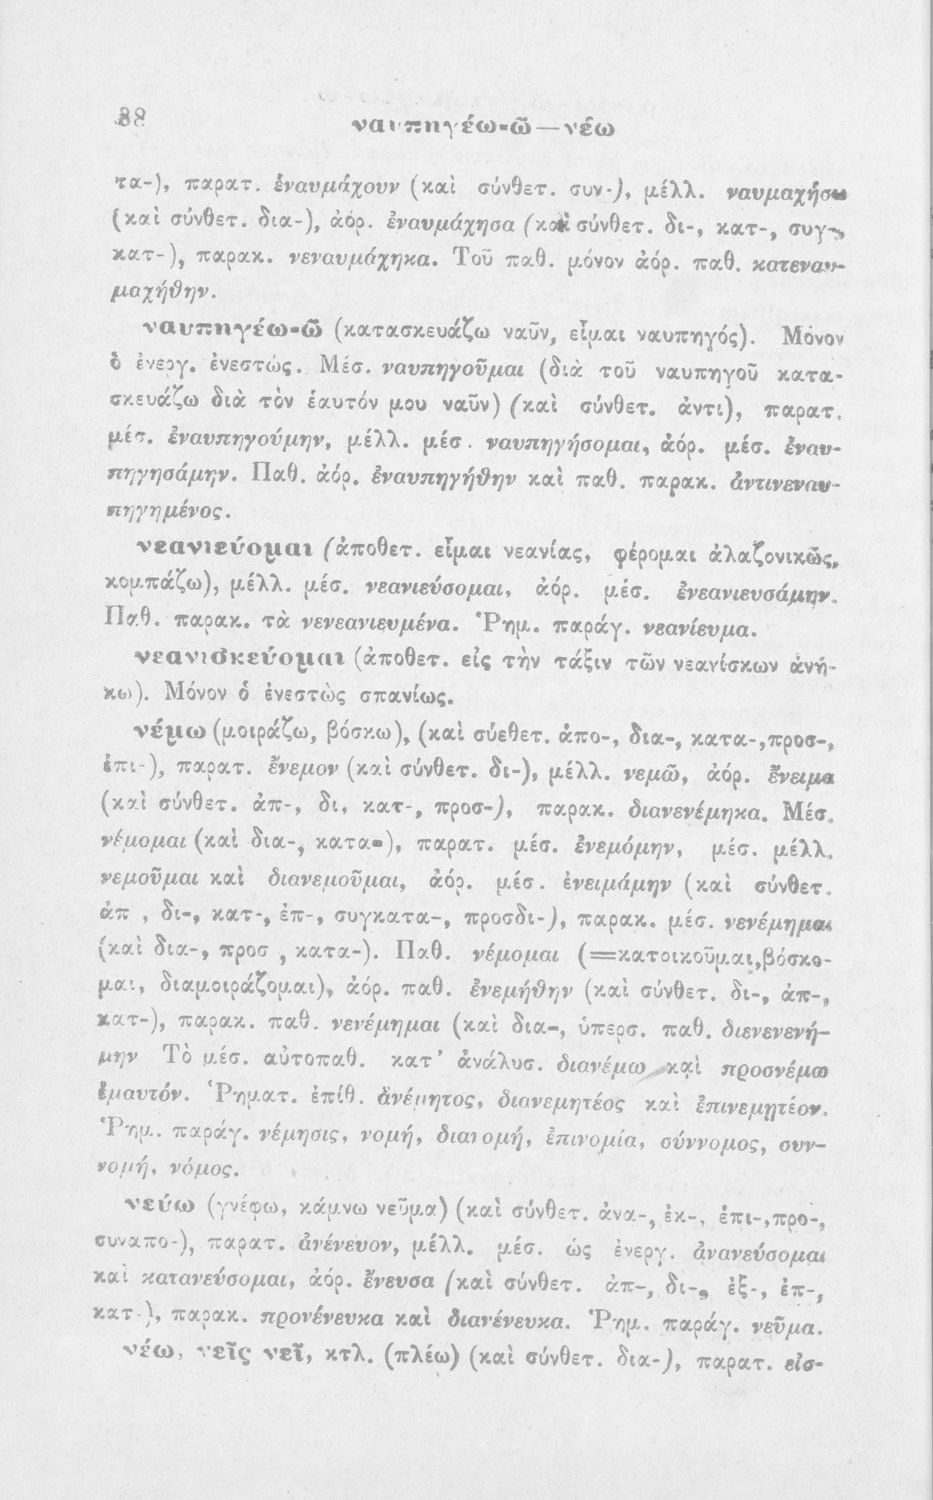 88
ναυπηγέω-ῶ — νέω
τα-), παρατ. ἐναυμάχουν (καὶ σύνθετ. συν-), μέλλ. ναυμαχήσω
(καὶ σύνθετ. δια-), ἀόρ. ἐναυμάχησα (καὶ σύνθετ. δι-, κατ-, συγ-
κατ-), παρακ. νεναυμάχηκα. Τοῦ παθ. μόνον ἀόρ. παθ. κατεναυ-
μαχήθην.
ναυπηγέω-ῶ (κατασκευάζω ναῦν, εἶμαι ναυπηγός). Μόνον
ὁ ἐνεργ. ἐνεστώς. Μέσ. ναυπηγοῦμαι (διὰ τοῦ ναυπηγοῦ κατα-
σκευάζω διὰ τὸν ἑαυτόν μου ναῦν) (καὶ σύνθετ. ἀντι), παρατ.
μέσ. ἐναυπηγούμην, μέλλ. μέσ. ναυπηγήσομαι, ἀόρ. μέσ. ἐναυ-
πηγησάμην. Παθ. ἀόρ. ἐναυπηγήθην καὶ παθ. παρακ. ἀντινεναυ-
πηγημένος.
νεανιεύομαι (ἀποθετ. εἶμαι νεανίας, φέρομαι ἀλαζονικῶς,
κομπάζω), μέλλ. μέσ. νεανιεύσομαι, ἀόρ. μέσ. ἐνεανιευσάμην.
Παθ. παρακ. τὰ νενεανιευμένα. Ῥημ. παράγ. νεανίευμα.
νεανισκεύομαι (ἀποθετ. εἰς τὴν τάξιν τῶν νεανίσκων ἀνή-
κω). Μόνον ὁ ἐνεστὼς σπανίως.
νέμω (μοιράζω, βόσκω), (καὶ σύεθετ. ἀπο-, δια-, κατα-,προσ-,
ἐπι-), παρατ. ἔνεμον (καὶ σύνθετ. δι-), μέλλ. νεμῶ, ἀόρ. ἔνειμα
(καὶ σύνθετ. ἀπ-, δι, κατ-, προσ-), παρακ. διανενέμηκα. Μέσ.
νέμομαι (καὶ δια-, κατα-), παρατ. μέσ. ἐνεμόμην, μέσ. μέλλ.
νεμοῦμαι καὶ διανεμοῦμαι, ἀόρ. μέσ. ἐνειμάμην (καὶ σύνθετ.
ἀπ , δι-, κατ-, ἐπ-, συγκατα-, προσδι-), παρακ. μέσ. νενέμημαι
(καὶ δια-, προσ , κατα-). Παθ. νέμομαι (=κατοικοῦμαι,βόσκο-
μαι, διαμοιράζομαι), ἀόρ. παθ. ἐνεμήθην (καὶ σύνθετ. δι-, ἀπ-,
κατ-), παρακ. παθ. νενέμημαι (καὶ δια-, ὑπερσ. παθ. διενενενή-
μην Τὸ μέσ. αὐτοπαθ. κατ' ἀνάλυσ. διανέμω καὶ προσνέμω
ἐμαυτόν. Ῥηματ. ἐπίθ. ἀνέμητος, διανεμητέος καὶ ἐπινεμητέον.
Ῥημ. παράγ. νέμησις, νομή, διανομή, ἐπινομία, σύννομος, συν-
νομή, νόμος.
νεύω (γνέφω, κάμνω νεῦμα) (καὶ σύνθετ. ἀνα-, ἐκ-, ἐπι-,προ-,
συναπο-), παρατ. ἀνένευον, μέλλ. μέσ. ὡς ἐνεργ. ἀνανεύσομαι
καὶ κατανεύσομαι, ἀόρ. ἔνευσα (καὶ σύνθετ. ἀπ-, δι-, ἐξ-, ἐπ-,
κατ-), παρακ. προνένευκα καὶ διανένευκα. Ῥημ. παράγ. νεῦμα.
νέω, νεῖς νεῖ, κτλ. (πλέω) (καὶ σύνθετ. δια-), παρατ. εἰσ-